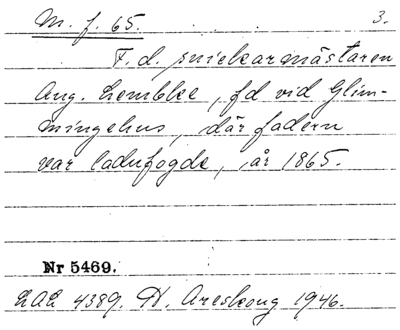 M. f. 65. 3.
F. d. snickarmästaren
Aug. Lembke, fd vid Glim-
mingehus, där fadern
var ladufogde, år 1865.
Nr 5469.
LAL 4389. N. Areskoug 1946.